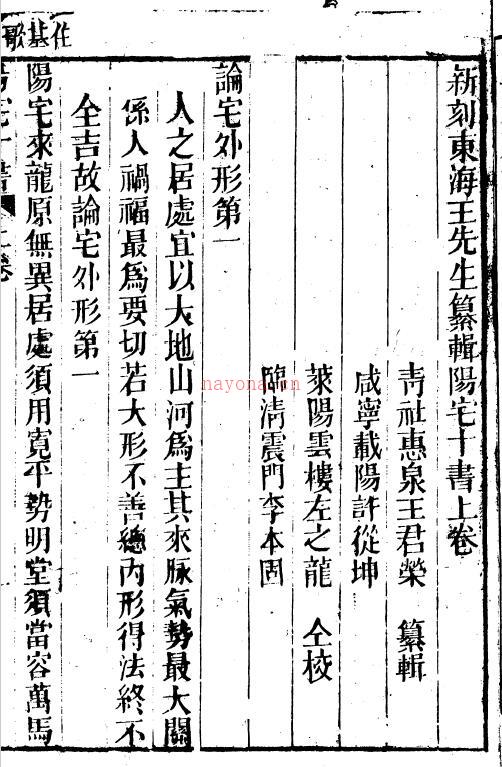 新刻東海王先生纂輯陽宅十書上卷
靑社惠泉王君榮 纂輯
咸寧載陽許從坤
萊陽雲樓左之龍 仝校
臨淸震門李本固
論宅外形第一
人之居處宜以大地山河爲主其來脉氣勢最大關
係人禍福最爲要切若大形不善總內形得法終不
全吉故論宅外形第一
陽宅來龍原無異居處須用寬平勢明堂須當容萬馬
住基歌
nayona.cn